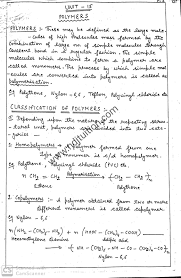 UNIT - 15
POLYMERS
POLYMERS : These may be defined as the large mole-
cules of high molecular mass formed by the
combination of large no. of simple molecules through
covalent bond in a regular fashion. The simple
molecules which combine to form a polymer are
called monomers. The process by which simple mol-
ecules are converted into polymers is called as
Polymerisation.
Eg Polythene, Nylon-6,6, Teflon, Polyvinyl chloride etc
CLASSIFICATION OF POLYMERS :-
Depending upon the nature of the repeating
structural unit, polymers divided into two cate-
gories :-
Homopolymers :- A polymer formed from one
type of monomer is c/d homopolymer.
Eg Polythene, Polyvinyl chloride (PVC) etc.
n CH2 = CH2 Polymerisation (CH2 - CH2)n
Ethene Polythene
Copolymers :- A polymer obtained from two or more
different monomers is called copolymer.
Eg Nylon - 6,6
Hexamethylene diamine Adipic acid
Nylon - 6,6